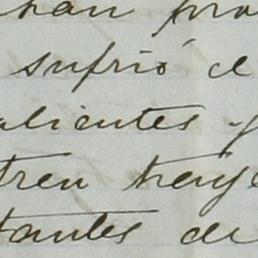 han pro
sufrió el
alientes y
tren traye
tantes de